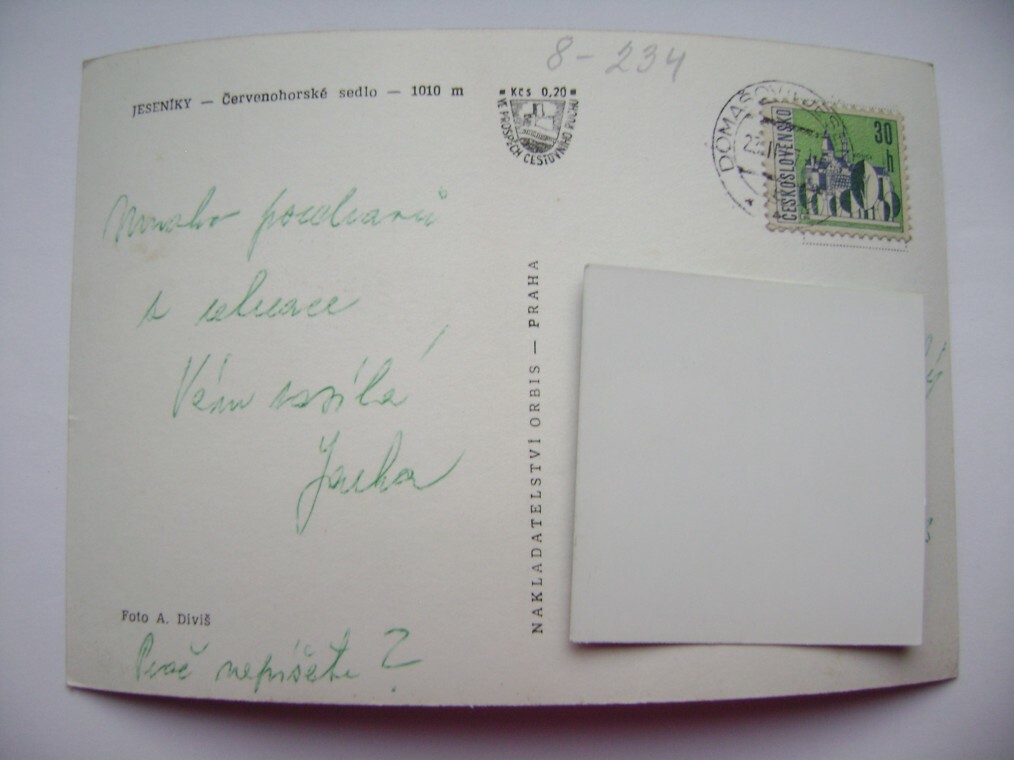 8-234
JESENÍKY — Červenohorské sedlo — 1010 m
Kčs 0,20
VE PROSPĚCH CESTOVNÍHO RUCHU
ČESKOSLOVENSKO
30 h
Mnoho pozdravů
s
Vám zasílá
NAKLADATELSTVÍ ORBIS — PRAHA
Foto A. Diviš
Proč nepíšete?